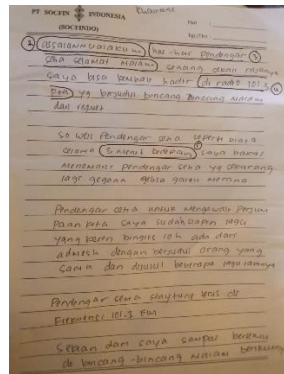 PT SOCFIN INDONESIA
(SOCFINDO)
No :
② Assalamualaikum hai-hai pendengar ③
setia selamat malam senang
saya bisa kembali hadir di radio 101.3 ④
FM yg berjudul bincang bincang malam
dan request
So well Pendengar setia seperti biasa
selama 5 menit kedepan saya bakal
menemani pendengar setia yg sekarang
lagi gegana gelisa galau merana
Pendengar setia untuk mengawali Perjum
paan kita saya sudah siapin lagu
yang keren bingits loh ada dari
admesh dengan berjudul orang yang
sama dan disusul beberapa lagu lainnya
Pendengar setia staytune terus di
Frekuensi 101.3 FM
Sekian dari saya sampai bertemu
di bincang-bincang malam berikutnya